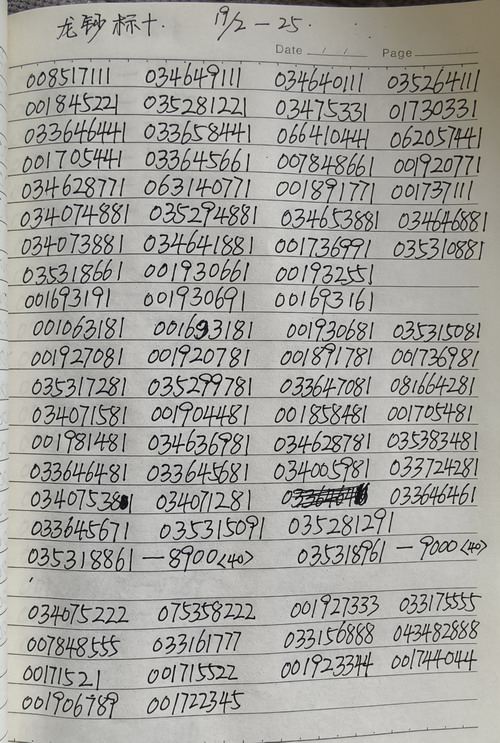 龙钞标十. 19/2-25.
Date / / Page
008517111 034649111 034640111 035264111
001845221 035281221 03475331 01730331
033646441 033658441 066410441 062057441
001705441 033645661 007848661 001920771
034628771 063140771 001891771 001737111
034074881 035294881 034653881 034646881
034073881 034641881 001736991 035310881
035318661 001930661 001932551
001693191 001930691 001693161
001063181 001693181 001930681 035315081
001927081 001920781 001891781 001736981
035317281 035299781 033647081 081664281
034071581 001904481 001858481 001705481
001981481 034636981 034628781 035383481
033646481 033645681 034005981 033724281
034071281 033646461
033645671 035315091 035281291
035318861 — 8900<40> 035318961 — 9000<40>
034075222 075358222 001927333 033175555
007848555 033161777 033156888 043482888
00171521 001715522 001923344 001744044
001906789 001722345